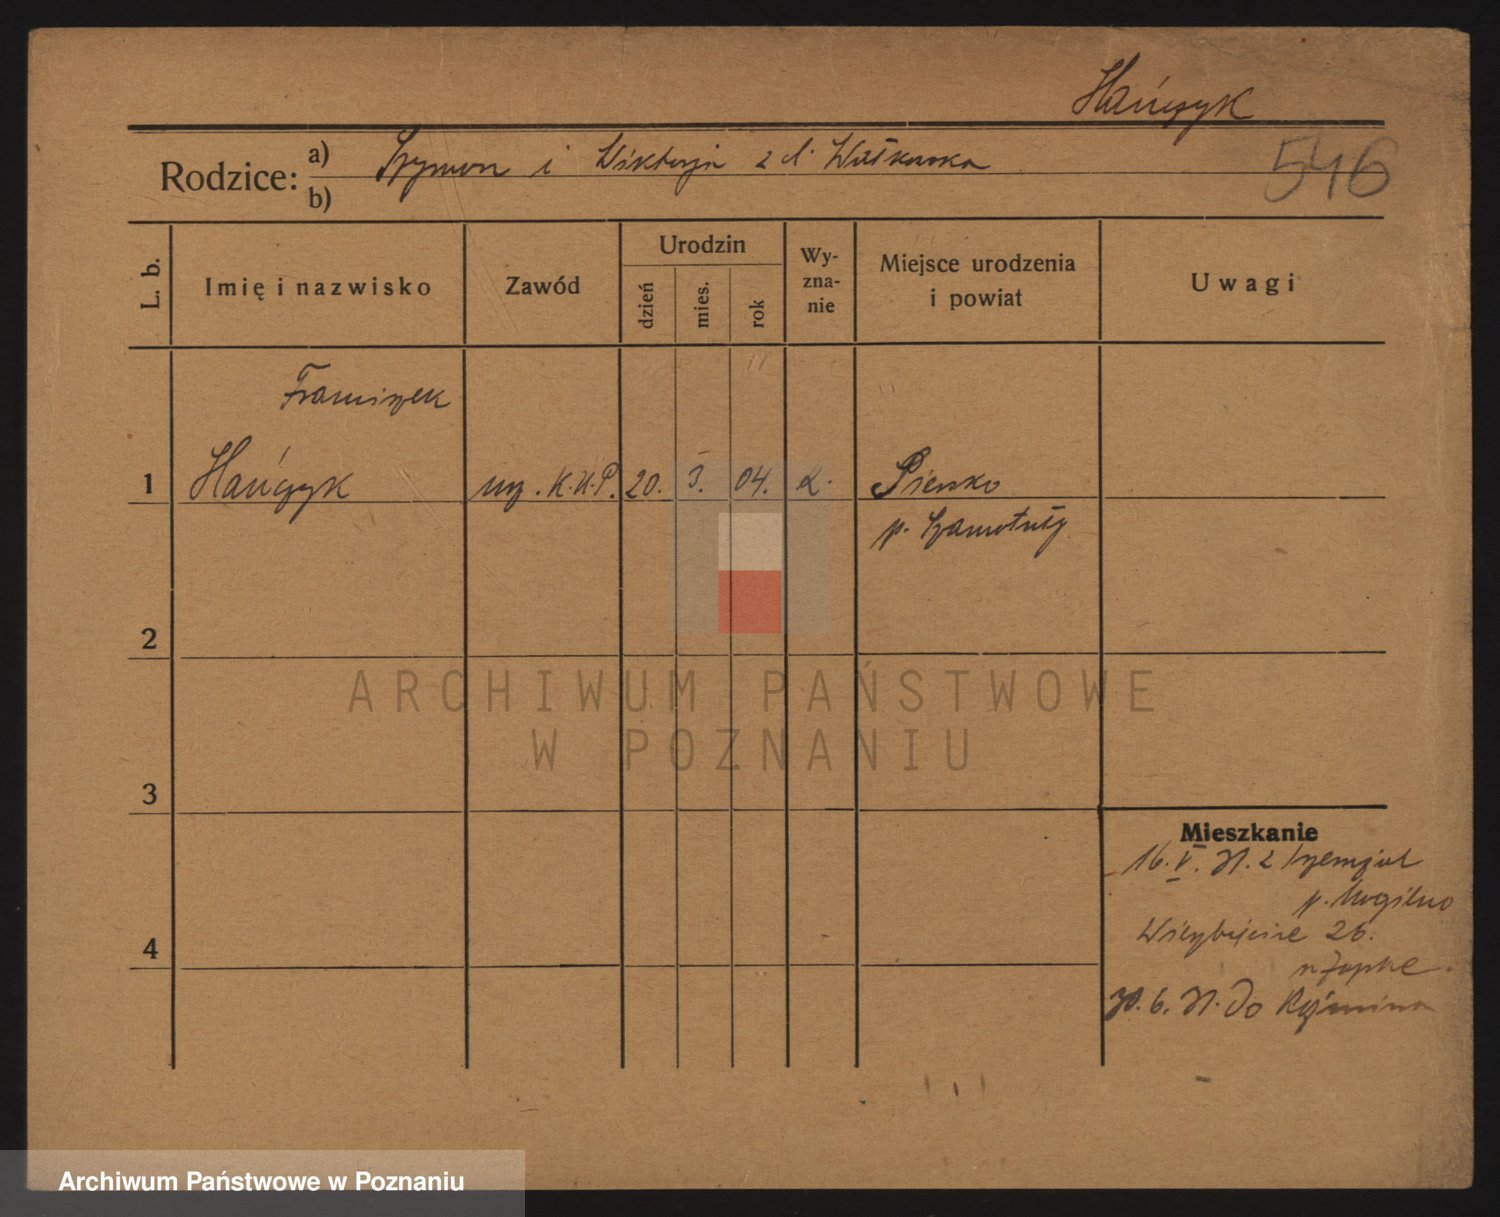 Hańczyk
546
Rodzice: a) Szymon i Wiktorja z d. Walkowska
b)
L. b. Imię i nazwisko Zawód Urodzin dzień mies. rok Wyznanie Miejsce urodzenia i powiat Uwagi
Franciszek
1 Hańczyk urz. K.K.P. 20. 3. 04. k. Piersko
p. Szamotuły
2
ARCHIWUM PAŃSTWOWE
W POZNANIU
3
Mieszkanie
16. V. 31. z
p. Mogilno
26.
4
30. 6. 31. do Koźmina
Archiwum Państwowe w Poznaniu